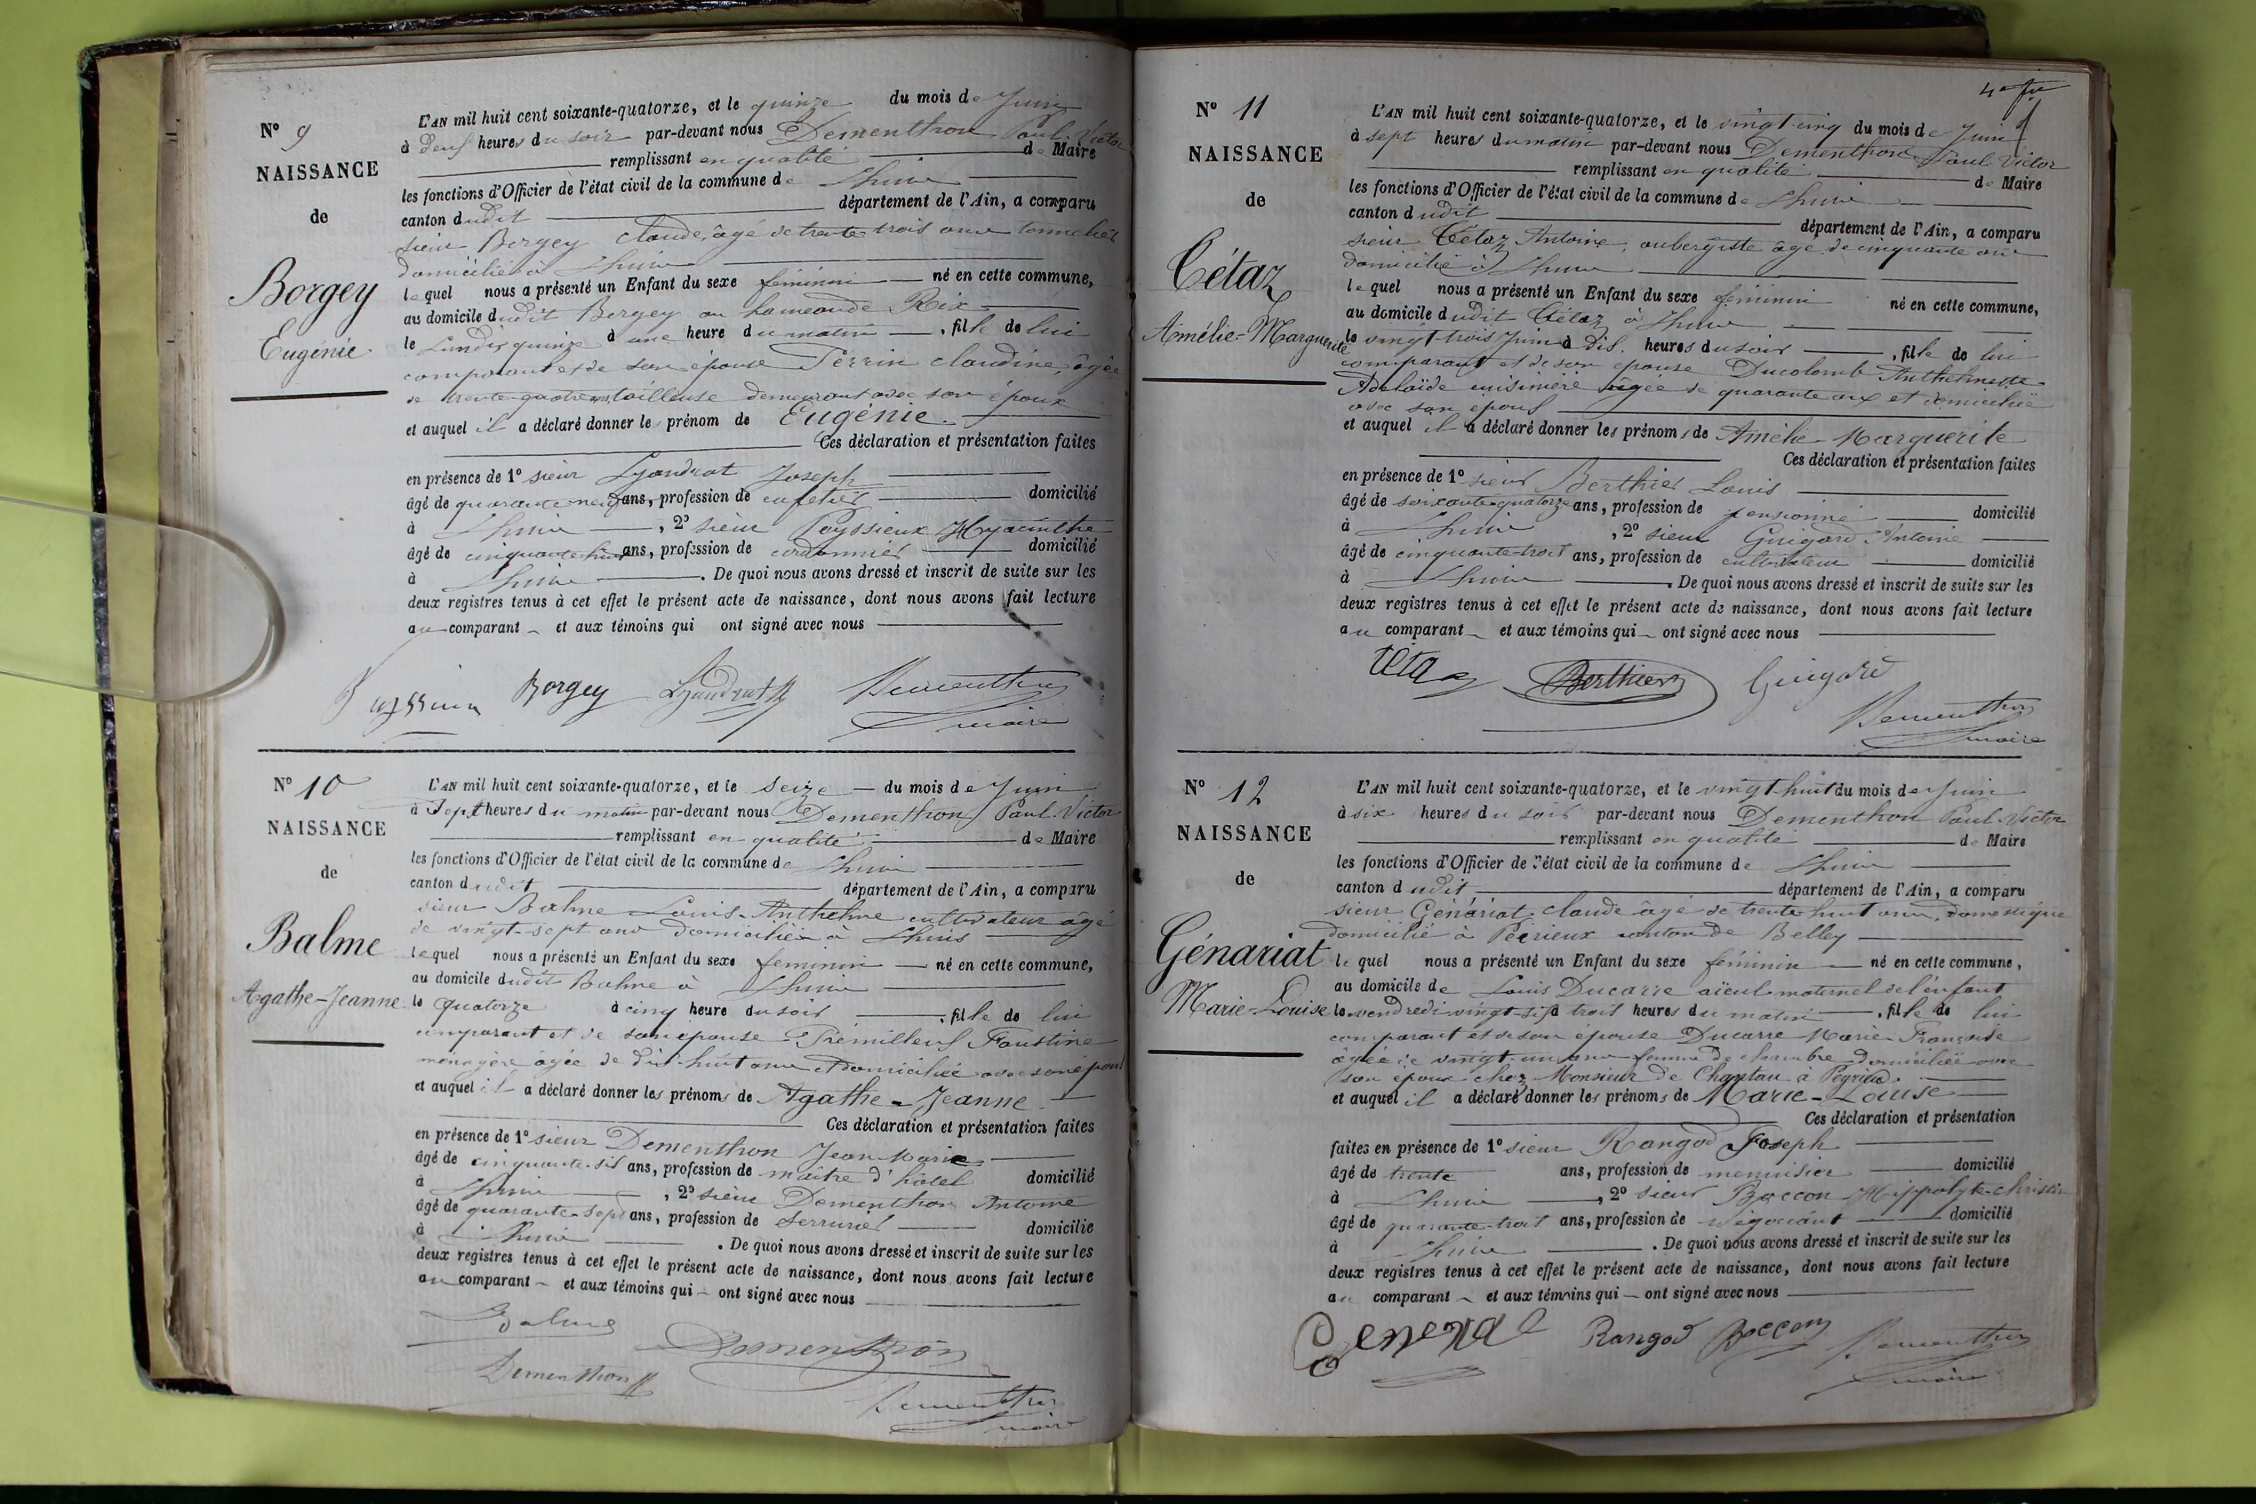 N° 9
NAISSANCE
de
Borgey
Eugénie
L'AN mil huit cent soixante-quatorze, et le quinze du mois de Juin
à deux heures du soir par-devant nous Dementhon Paul Victor
remplissant en qualité de Maire
les fonctions d'Officier de l'état civil de la commune de Lhuis
canton dudit département de l'Ain, a comparu
sieur Borgey Claude, âgé de trente trois ans tonnelier
domicilié à Lhuis
lequel nous a présenté un Enfant du sexe féminin né en cette commune,
au domicile dudit Borgey au hameau de Rix
le Lundi quinze à une heure du matin, fille de lui
comparant et de son épouse Perrin Claudine, âgée
de trente quatre ans tailleuse demeurant avec son époux
et auquel il a déclaré donner les prénom de Eugénie
Ces déclaration et présentation faites
en présence de 1° sieur Lyaudrat Joseph
âgé de quarante neuf ans, profession de cafetier domicilié
à Lhuis, 2° sieur Peyssieux Hyacinthe
âgé de cinquante huit ans, profession de cordonnier domicilié
à Lhuis. De quoi nous avons dressé et inscrit de suite sur les
deux registres tenus à cet effet le présent acte de naissance, dont nous avons fait lecture
au comparant et aux témoins qui ont signé avec nous
Borgey Lyaudrat Dementhon
maire
N° 10
NAISSANCE
de
Balme
Agathe-Jeanne
L'AN mil huit cent soixante-quatorze, et le seize du mois de Juin
à Sept heures du matin par-devant nous Dementhon Paul Victor
remplissant en qualité de Maire
les fonctions d'Officier de l'état civil de la commune de Lhuis
canton dudit département de l'Ain, a comparu
sieur Balme Louis-Anthelme cultivateur âgé
de vingt-sept ans domicilié à Lhuis
lequel nous a présenté un Enfant du sexe feminin né en cette commune,
au domicile dudit Balme à Lhuis
le quatorze à cinq heure du soir, fille de lui
comparant et de son épouse Prémillieux Faustine
ménagère âgée de dix-huit ans et domiciliée avec son époux
et auquel il a déclaré donner les prénoms de Agathe-Jeanne
Ces déclaration et présentation faites
en présence de 1° sieur Dementhon Jean Marie
âgé de cinquante-six ans, profession de maître d'hôtel domicilié
à Lhuis, 2° sieur Dementhon Antoine
âgé de quarante-sept ans, profession de serrurier domicilié
à Lhuis. De quoi nous avons dressé et inscrit de suite sur les
deux registres tenus à cet effet le présent acte de naissance, dont nous avons fait lecture
au comparant et aux témoins qui ont signé avec nous
Balme Dementhon
Dementhon
Dementhon
maire
N° 11
NAISSANCE
de
Tétaz
Amélie-Marguerite
L'AN mil huit cent soixante-quatorze, et le vingt-cinq du mois de Juin
à sept heures du matin par-devant nous Dementhon Paul Victor
remplissant en qualité de Maire
les fonctions d'Officier de l'état civil de la commune de Lhuis
canton dudit département de l'Ain, a comparu
sieur Tétaz Antoine, aubergiste âgé de cinquante ans
domicilié à Lhuis
lequel nous a présenté un Enfant du sexe féminin né en cette commune,
au domicile dudit Tétaz à Lhuis
le vingt-trois Juin à dix heures du soir, fille de lui
comparant et de son épouse Ducolomb Anthelmette
Adelaïde cuisinière âgée de quarante ans et domiciliée
avec son époux
et auquel il a déclaré donner les prénoms de Amélie-Marguerite
Ces déclaration et présentation faites
en présence de 1° sieur Berthier Louis
âgé de soixante-quatorze ans, profession de pensionné domicilié
à Lhuis, 2° sieur Guigard Antoine
âgé de cinquante-trois ans, profession de cultivateur domicilié
à Lhuis. De quoi nous avons dressé et inscrit de suite sur les
deux registres tenus à cet effet le présent acte de naissance, dont nous avons fait lecture
au comparant et aux témoins qui ont signé avec nous
Tétaz Berthier Guigard
Dementhon
maire
N° 12
NAISSANCE
de
Génariat
Marie-Louise
L'AN mil huit cent soixante-quatorze, et le vingt-huit du mois de Juin
à six heures du soir par-devant nous Dementhon Paul-Victor
remplissant en qualité de Maire
les fonctions d'Officier de l'état civil de la commune de Lhuis
canton dudit département de l'Ain, a comparu
sieur Génariat Claude âgé de trente-huit ans, domestique
domicilié à Peirieux canton de Belley
lequel nous a présenté un Enfant du sexe féminin né en cette commune,
au domicile de Louis Ducarre aïeul maternel de l'enfant
le vendredi vingt-six à trois heures du matin, fille de lui
comparant et de son épouse Ducarre Marie-Françoise
âgée de vingt-un ans femme de chambre domiciliée avec
son époux chez Monsieur de à Peyrieu
et auquel il a déclaré donner les prénoms de Marie-Louise
Ces déclaration et présentation
faites en présence de 1° sieur Rangod Joseph
âgé de trente ans, profession de menuisier domicilié
à Lhuis, 2° sieur Baccon Hippolyte-Christin
âgé de quarante-trois ans, profession de négociant domicilié
à Lhuis. De quoi nous avons dressé et inscrit de suite sur les
deux registres tenus à cet effet le présent acte de naissance, dont nous avons fait lecture
au comparant et aux témoins qui ont signé avec nous
Rangod Baccon Dementhon
maire